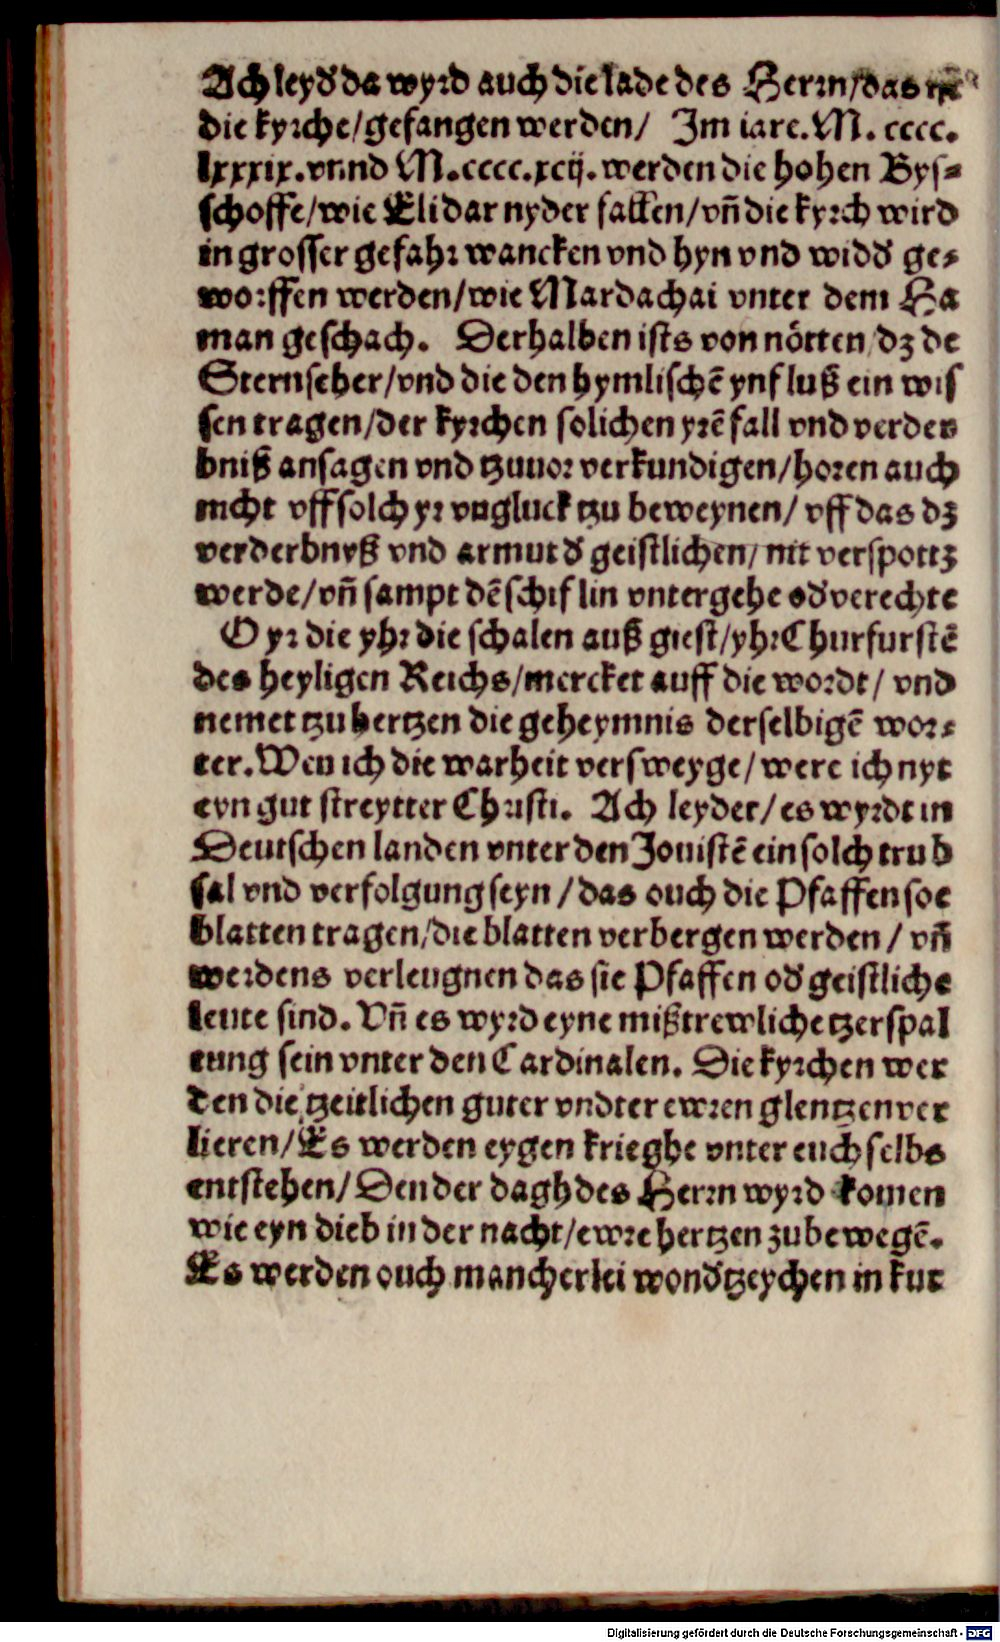 Ach leyd̕ da wyrd auch die lade des Herrn/das ist
die kyrche/gefangen werden/ Im iare.M.cccc.
lxxxix.vnnd M.cccc.xcij.werden die hohen Bys⸗
schoffe/wie Eli dar nyder fallen/vñ die kyrch wird
in grosser gefahr wancken vnd hyn vnd widd̕ ge⸗
worffen werden/wie Mardachai vnter dem Ha
man geschach. Derhalben ists von nötten/dz de
Sternseher/vnd die den hymlischē ynfluß ein wis
sen tragen/der kyrchen solichen yrē fall vnd verder
bniß ansagen vnd tzuuor verkundigen/horen auch
nicht vff solch yr vngluck tzu beweynen/vff das dz
verderbnyß vnd armut d̕ geistlichen/nit verspottz
werde/vñ sampt dē schiflin vntergehe od̕ verechte
O yr die yhr die schalen auß giest/yhr Churfurstē
des heyligen Reichs/mercket auff die wordt/ vnd
nemet tzu hertzen die geheymnis derselbigē wor⸗
ter.Wen ich die warheit versweyge/were ich nyt
eyn gut streytter Christi. Ach leyder/es wyrdt in
Deutschen landen vnter den Jouistē ein solch trub
sal vnd verfolgung seyn/das ouch die Pfaffen soe
blatten tragen/die blatten verbergen werden/ vñ
werdens verleugnen das sie Pfaffen od̕ geistliche
leute sind. Vñ es wyrd eyne mißtrewliche tzerspal
tung sein vnter den Cardinalen. Die kyrchen wer
den die tzeitlichen guter vndter ewren glentzen ver
lieren/Es werden eygen krieghe vnter euch selbs
entstehen/Den der dagh des Herrn wyrd komen
wie eyn dieb in der nacht/ewre hertzen zu bewegē.
Es werden ouch mancherlei wond̕tzeychen in kur
Digitalisierung gefördert durch die Deutsche Forschungsgemeinschaft - DFG